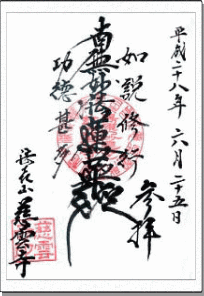 平成二十八年六月二十五日
参拝
如説修行
南無妙法蓮華経
功徳甚多
慈雲寺